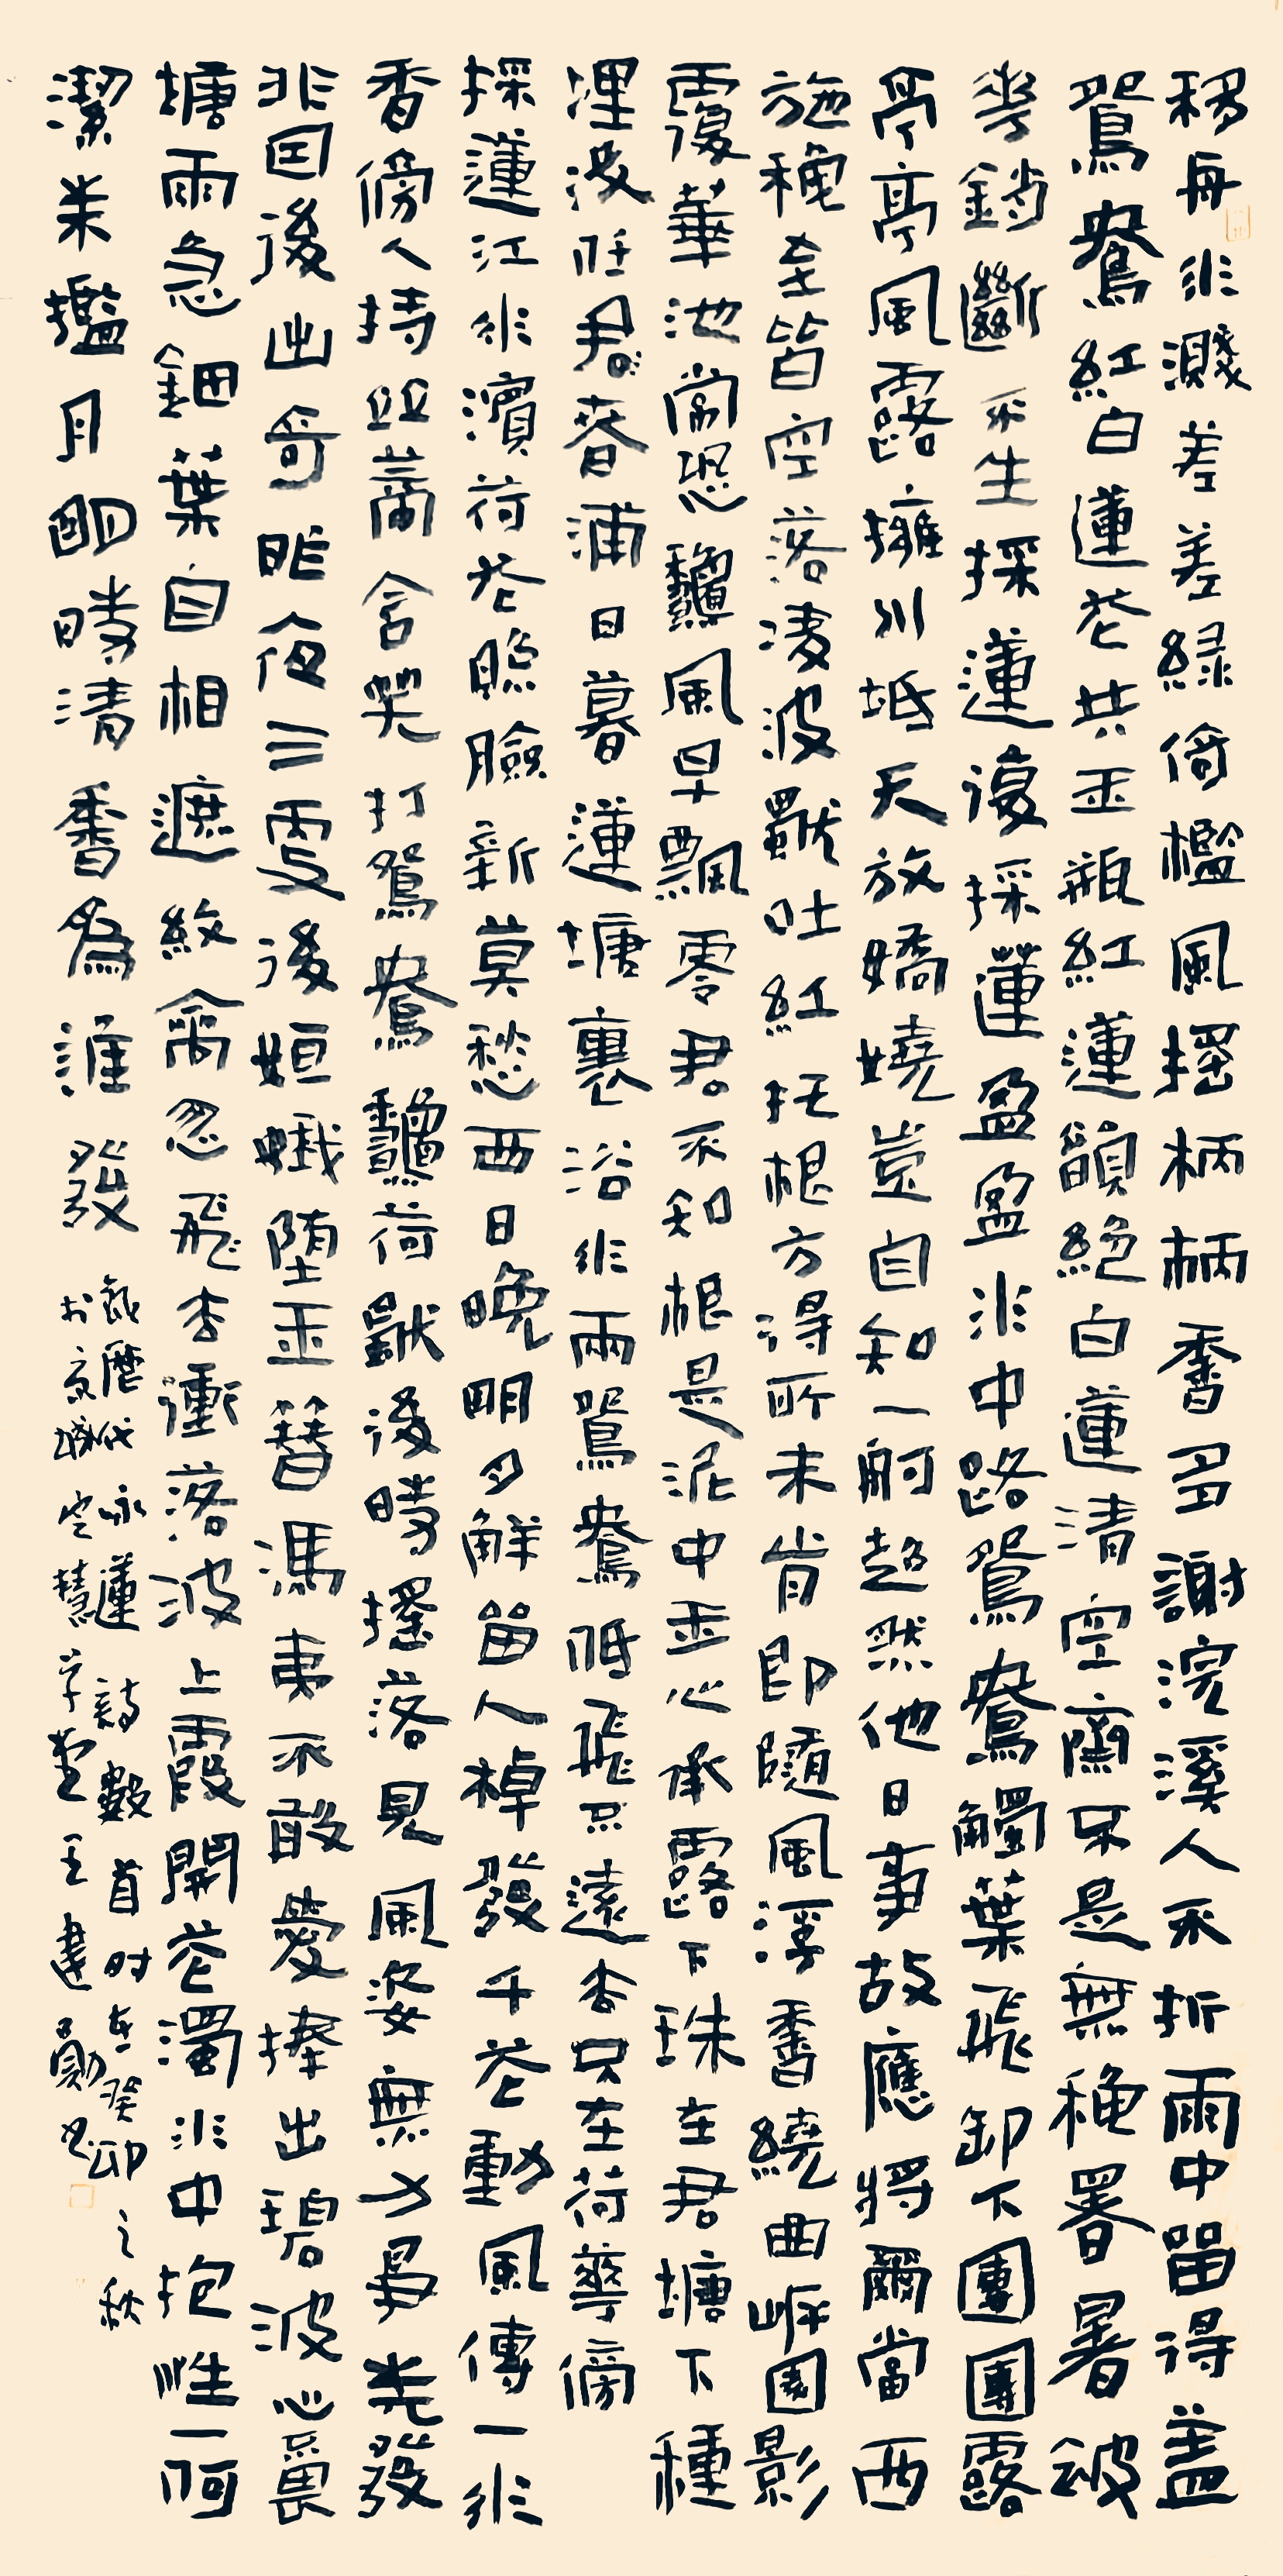 移舟水濺差差綠倚檻風搖柄柄香多謝浣溪人不折雨中留得蓋
鴛鴦紅白蓮花共玉瓶紅蓮韻絕白蓮清空齋不是無穐暑暑被
花銷斷不生採蓮復採蓮盈盈水中路鴛鴦觸葉飛卸下團團露
亭亭風露擁川坻天放嬌嬈豈自知一舸超然他日事故應將爾當西
施穐至皆空落凌波獨吐紅托根方得所未肯即隨風浮香繞曲岸圓影
覆華池常恐龝風早飄零君不知根是泥中玉心承露下珠在君塘下種
埋沒任君春浦日暮蓮塘裏浴水兩鴛鴦低飛不遠去只在荷花傍
採蓮江水濱荷花照臉新莫愁西日晚明月解留人棹發千花動風傳一水
香傍人持並蒂含笑打鴛鴦龝荷獨後時搖落見風姿無力爭先發
非因後出奇昨夜三更後姮娥墮玉簪馮夷不敢愛捧出碧波心
塘雨急鈿葉自相遮紋禽忽飛去衝落波上霞開花濁水中抱性一何
潔朱檻月明時清香為誰發
錄歷代詠蓮詩數首时在癸卯之秋
於京城空慧草堂王建勛书